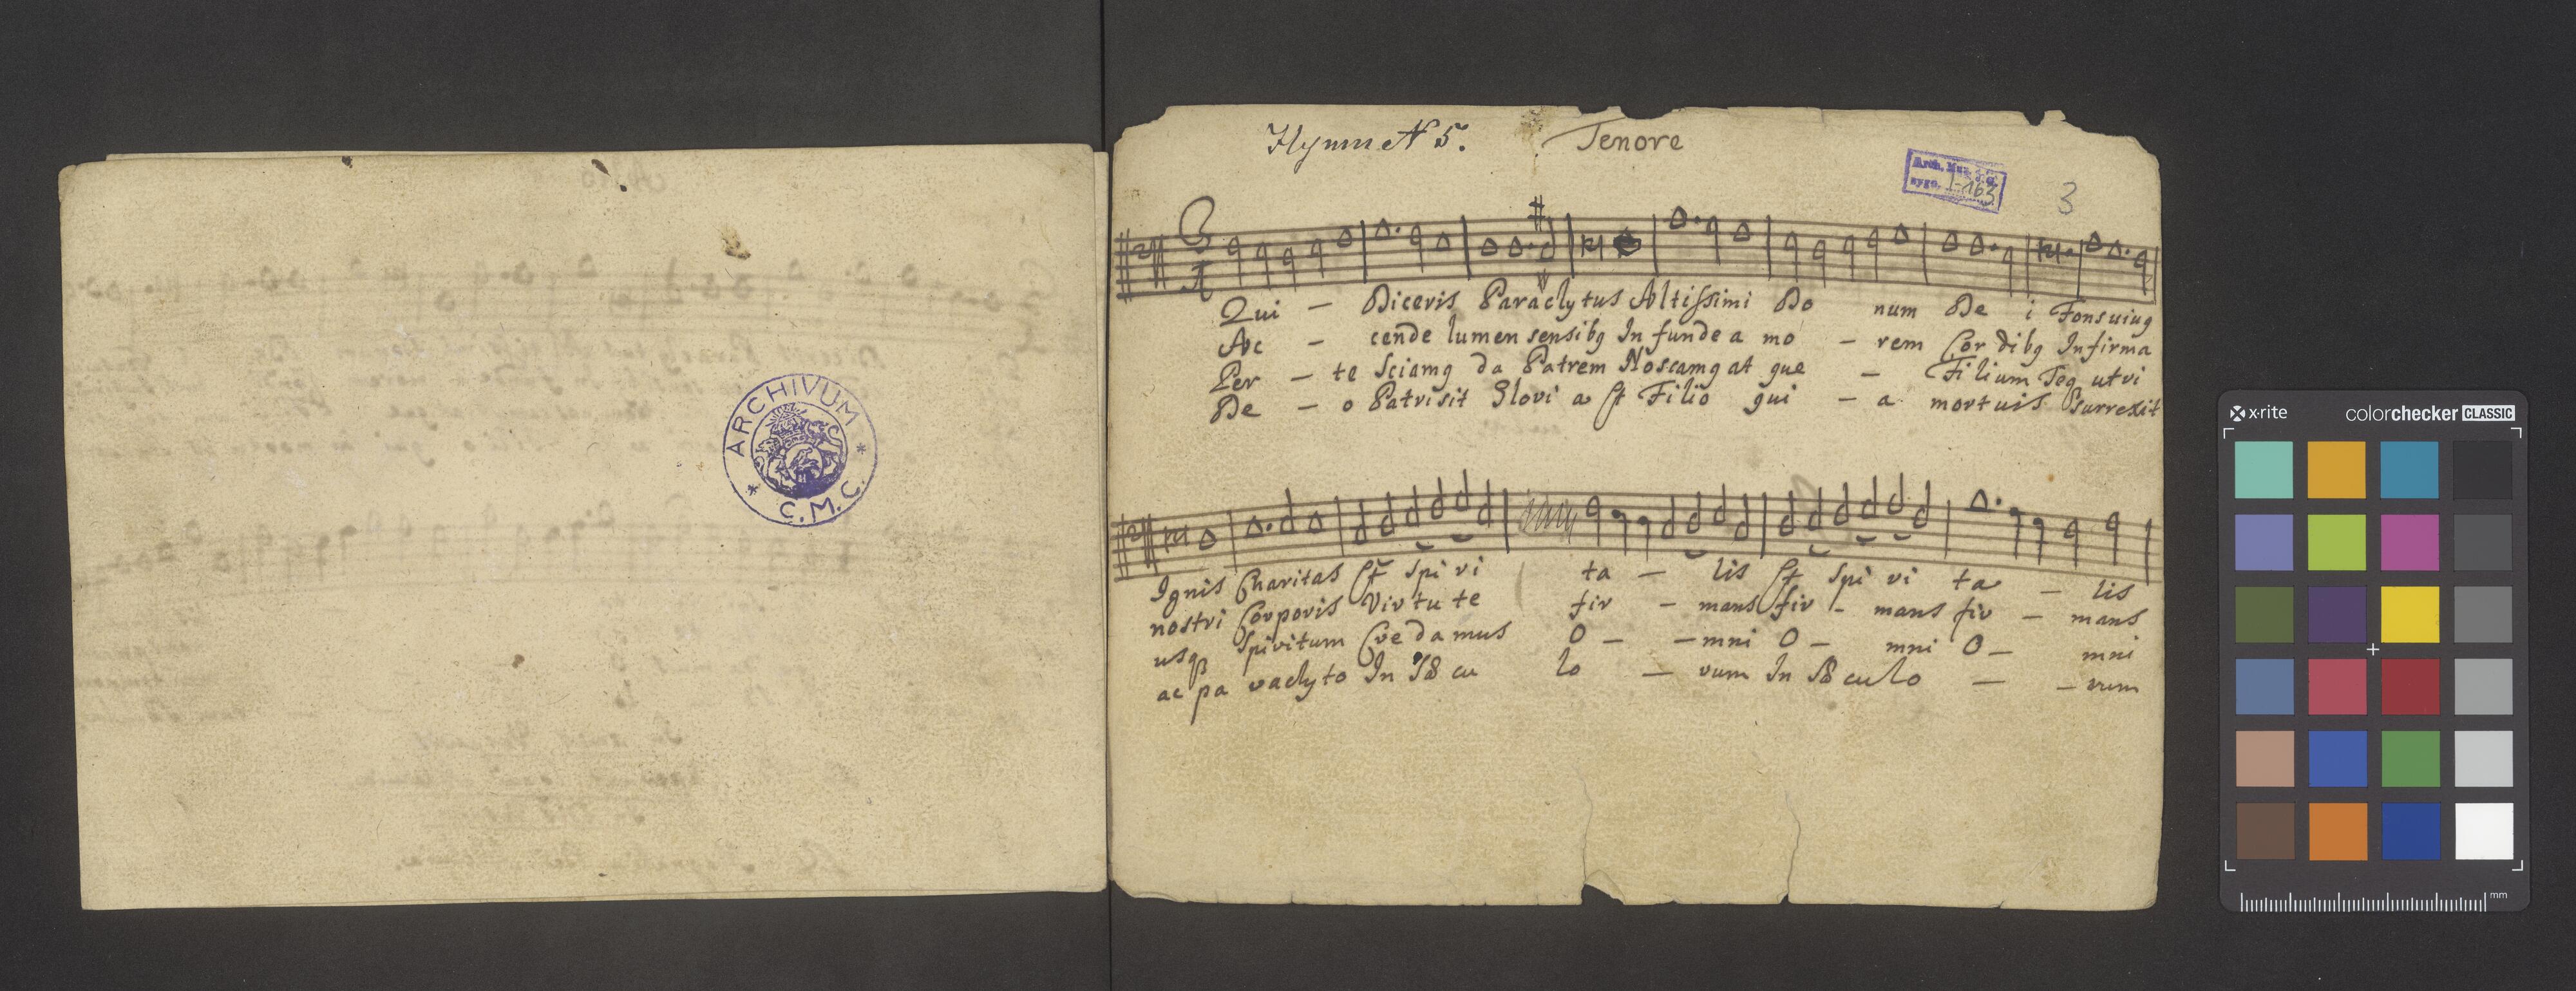 ARCHIVUM
* C. M. C. *
Hymn N 5. Tenore
Arch. Mus. J.G.
sygn. I-163
3
Qui - Diceris Paraclytus Altissimi Do num De i Fons uiug
Ac - cende lumen sensibg Infunde a mo - rem Cor dibg Infirma
Per - te Sciamg da Patrem Noscamg at que - Filium Teq utvi
De - o Patri sit Glori a Et Filio qui - a mortuis Surrexit
Ignis Charitas Et Spi ri ta - lis Et Spi ri ta - lis
nostri Corporis Virtu te fir - mans fir - mans fir - mans
usq Spiritum Cre da mus O - - mni O - mni O - mni
ac pa raclyto In Sæ cu lo - rum In Sæ cu lo - - rum
x·rite colorchecker CLASSIC
mm